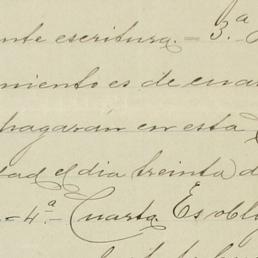 ente escritura. = 3.ª
miento es de cua
pagarán en esta
dad el dia treinta d
= 4ª.- Cuarta. Es obl